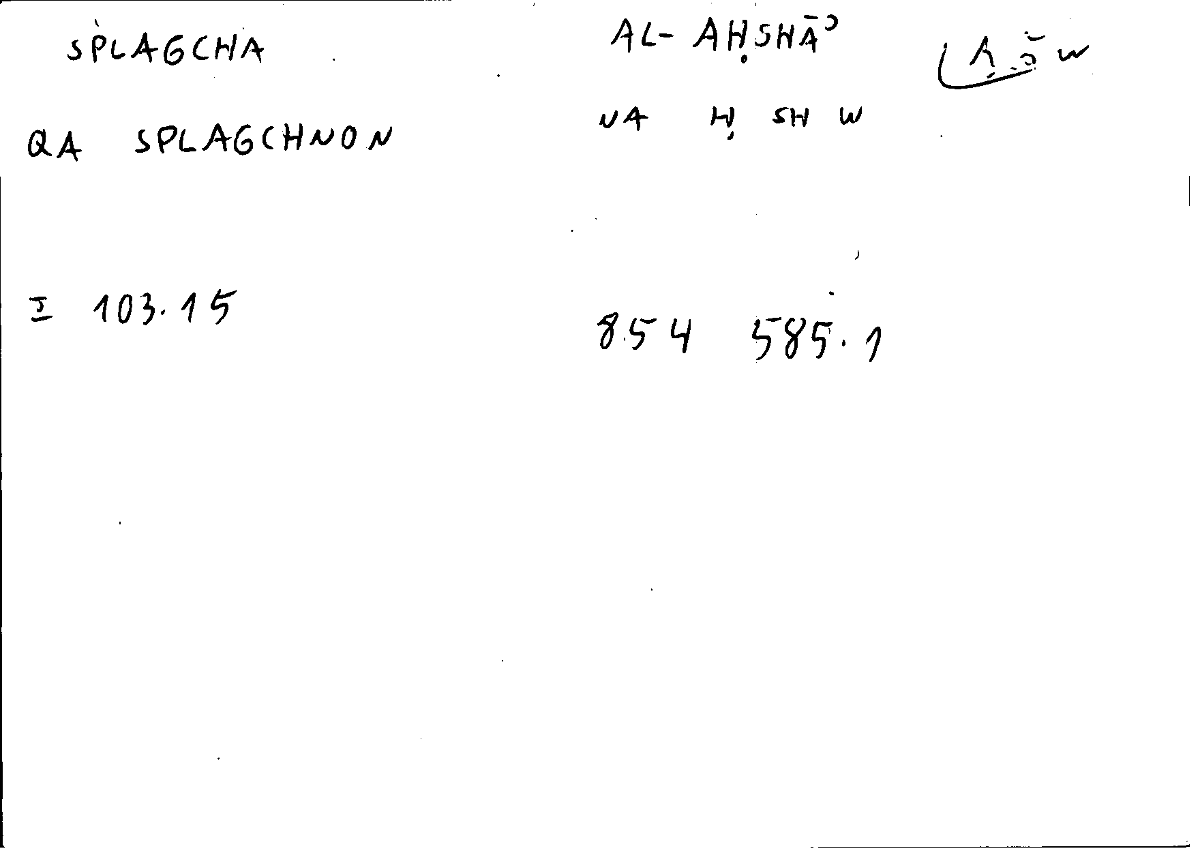 SPLAGCHA
QA SPLAGCHNON
I 103.15
AL- AḤSHĀʾ
NA Ḥ SH W
854 585.1